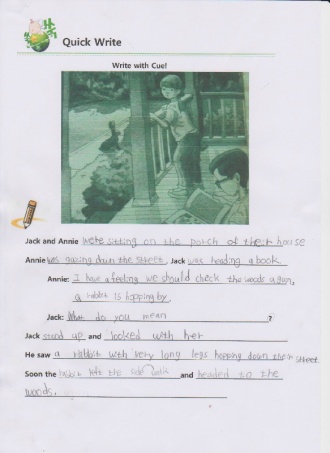 Quick Write
Write with Cue!
Jack and Annie were sitting on the porch of their house
Annie was gazing down the street. Jack was reading a book.
Annie: I have a feeling we should check the woods again,
a rabbit is hopping by.
Jack: What do you mean ?
Jack stand up and looked with her
He saw a rabbit with very long legs hopping down their street.
Soon the rabbit left the side walk and headed to the
woods.